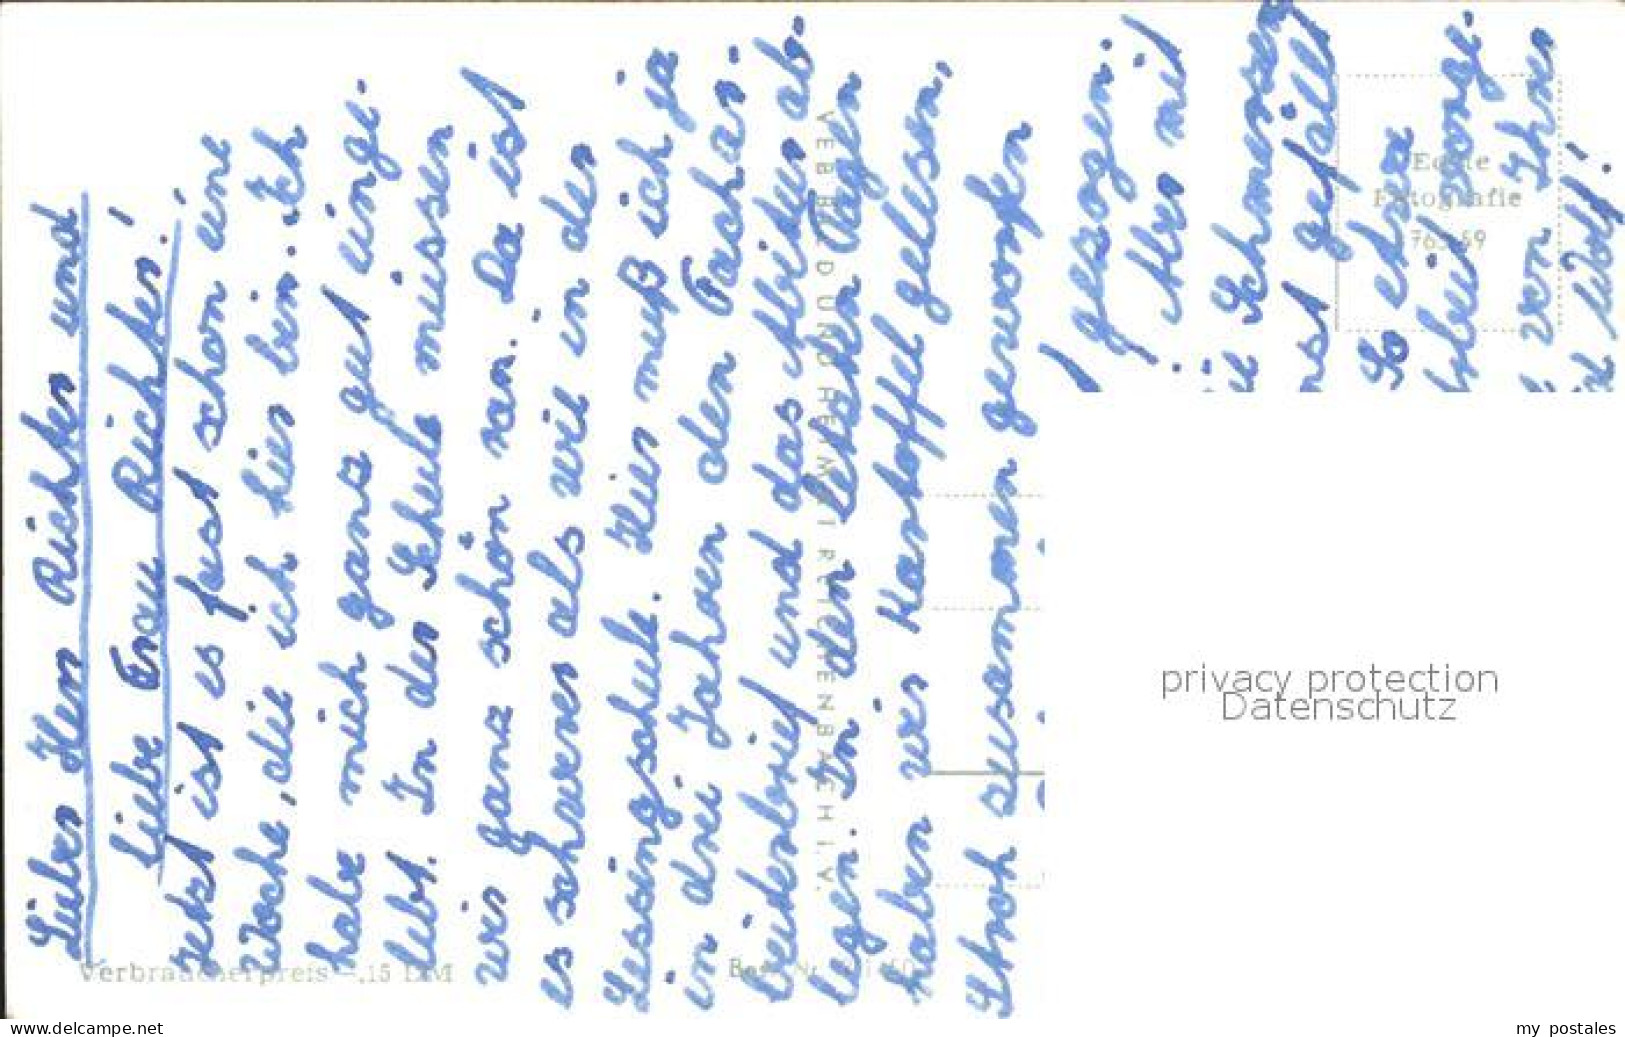 Lieber Herr Richter und
liebe Frau Richter!
Jetzt ist es fast schon eine
Woche, die ich hier bin. Ich
habe mich ganz gut einge-
lebt. In der Schule müssen
wir ganz schön ran. Da ist
es schwerer als wie in der
Lessingschule. Hier muß ich ja
in drei Jahren den Fachar-
beiterbrief und das Abitur ab-
legen. In den letzten Tagen
haben wir Kartoffel gelesen,
Stroh zusammen geworfen
gezogen.
Aber mit
Schmerzen
gefällt
So etwa
von Ihnen
Wolf!
Echte
Fotografie
VEB BILD UND HEIMAT REICHENBACH I. V.
Verbraucherpreis –,15 DM
privacy protection
Datenschutz
www.delcampe.net
my_postales